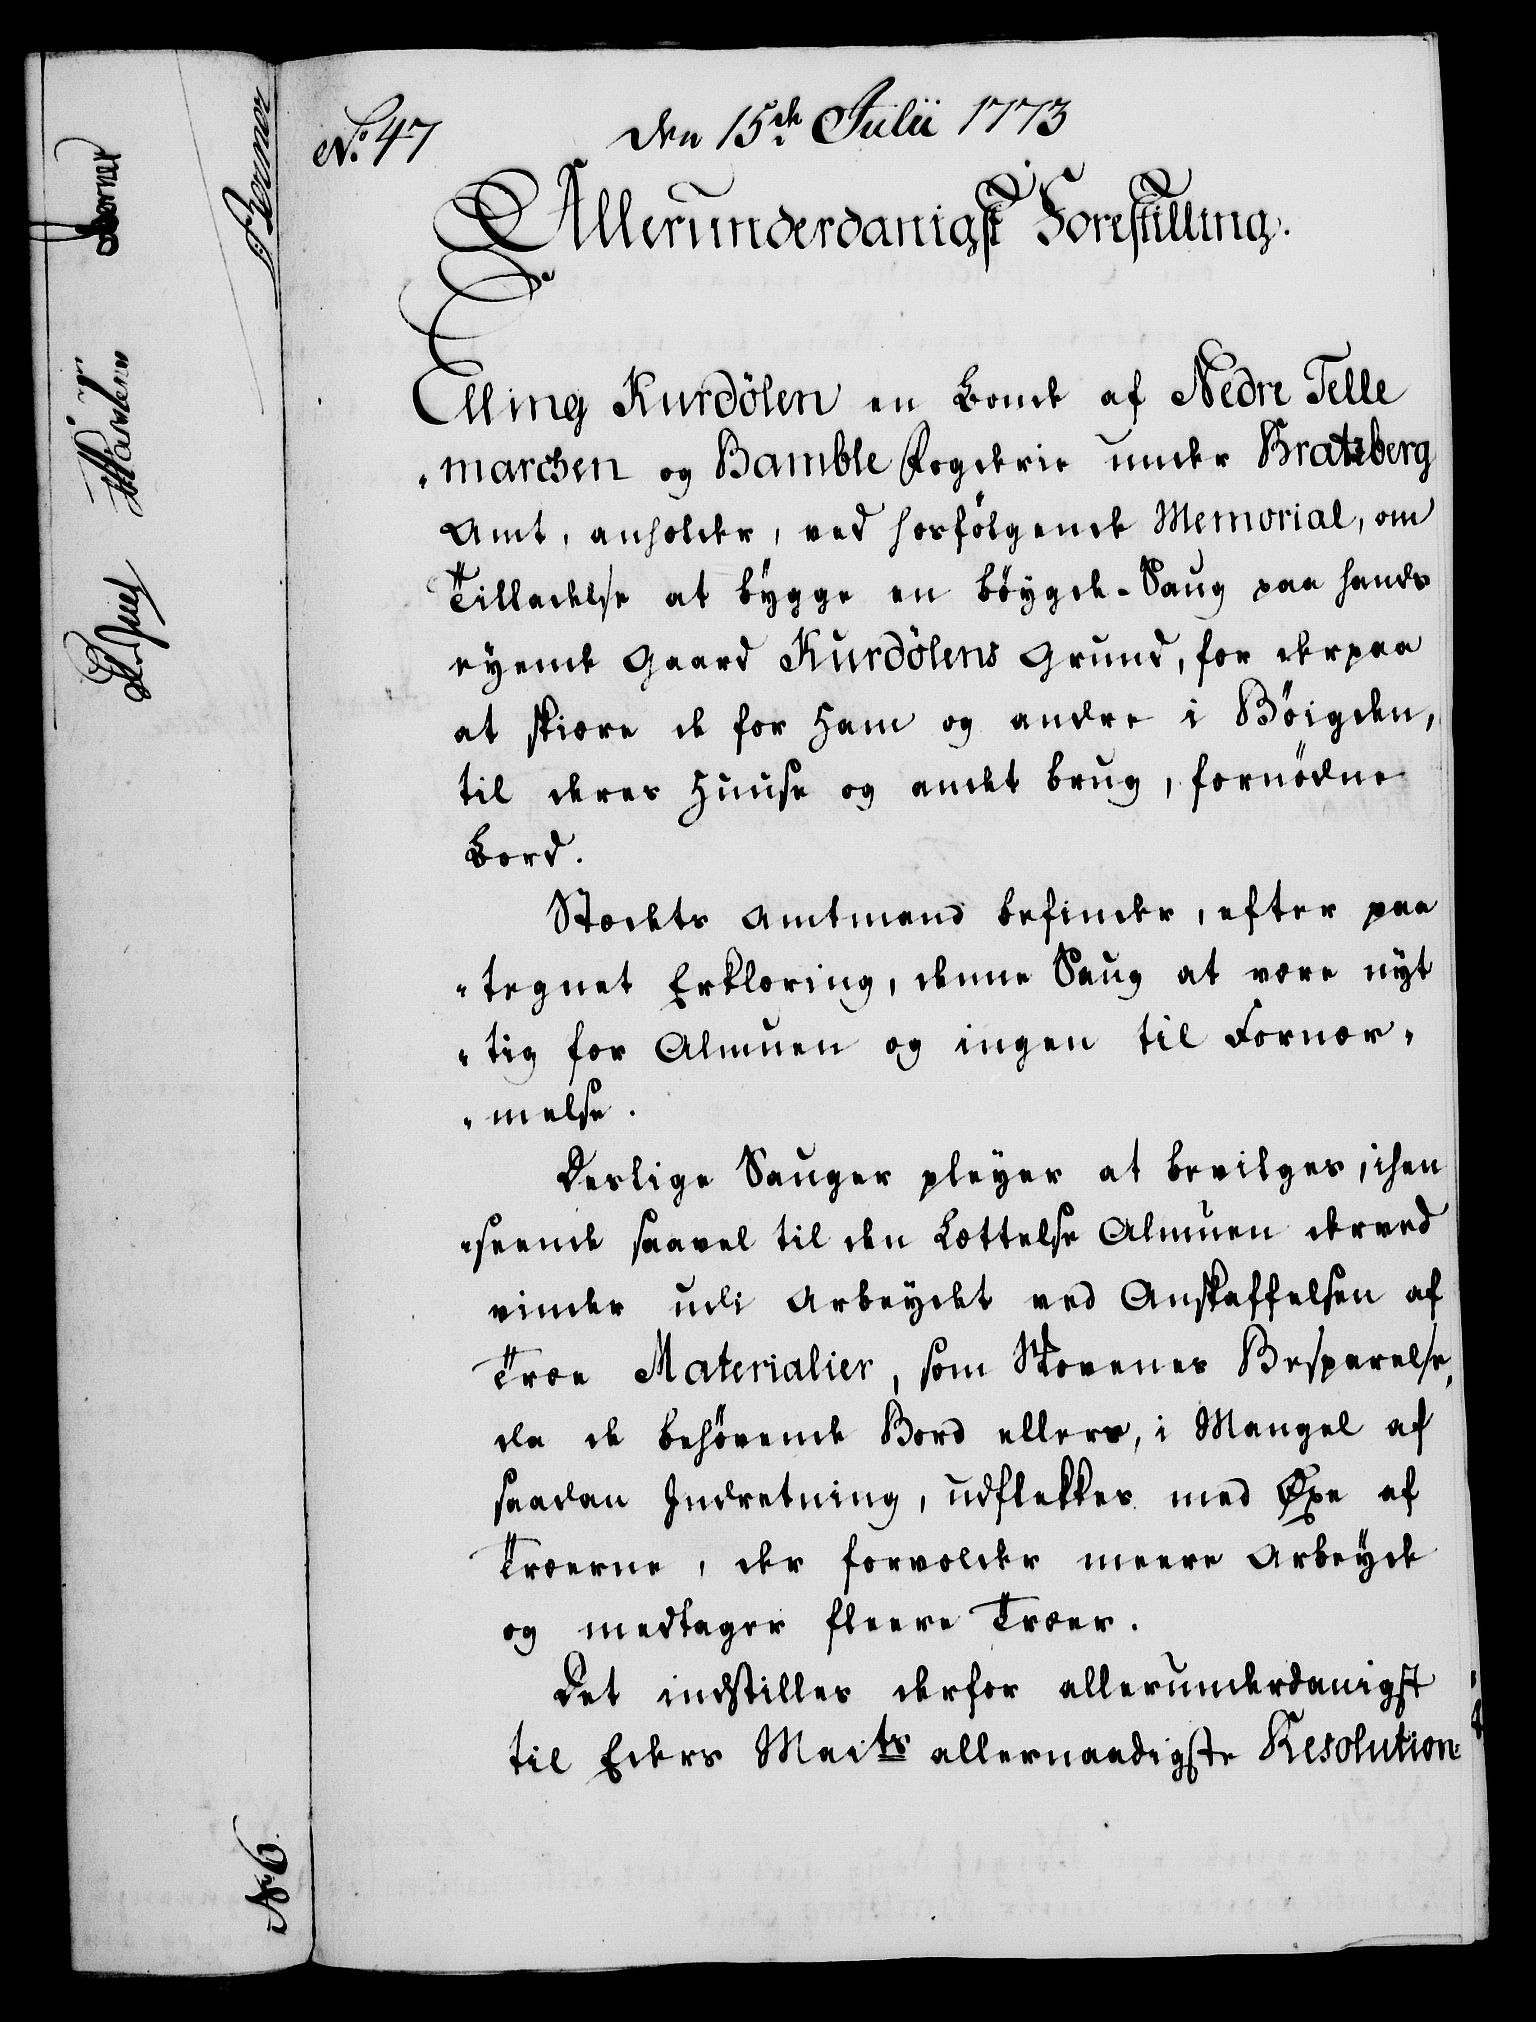 No. 47
den 15de Julii 1773
Allerunderdanigst Forestilling.
Elling Kurdölen en Bonde af Nedre Telle
"marchen og Bamble Fogderie under Bratsberg
Amt, anholder, ved hosfölgende Memorial, om
Tilladelse at bÿgge en böÿgde-Saug paa hands
eÿende Gaard Kurdölens Grund, for derpaa
at skiære de for Ham og andre i Böigden,
til deres Huuse og andet brug, fornödne
Bord.
Stædets Amtmand befinder, efter paa
"tegnet Erklæring, denne Saug at være nÿt
"tig for Almuen og ingen til Fornær"
"melse.
Deslige Sauger pleÿer at bevilges, ihen
"seende saavel til den Lættelse Almuen derved
vinder udi Arbeÿdet ved Anskaffelsen af
Træe Materialier, som Skovenes Besparelse,
da de behövende Bord ellers, i Mangel af
saadan Indretning, udflekkes med Øxe af
Træerne, der forvolder meere Arbeÿde
og medtager fleere Træer.
Det indstilles derfor allerunderdanigst
til Eders Maits allernaadigste Resolution:
No 6.